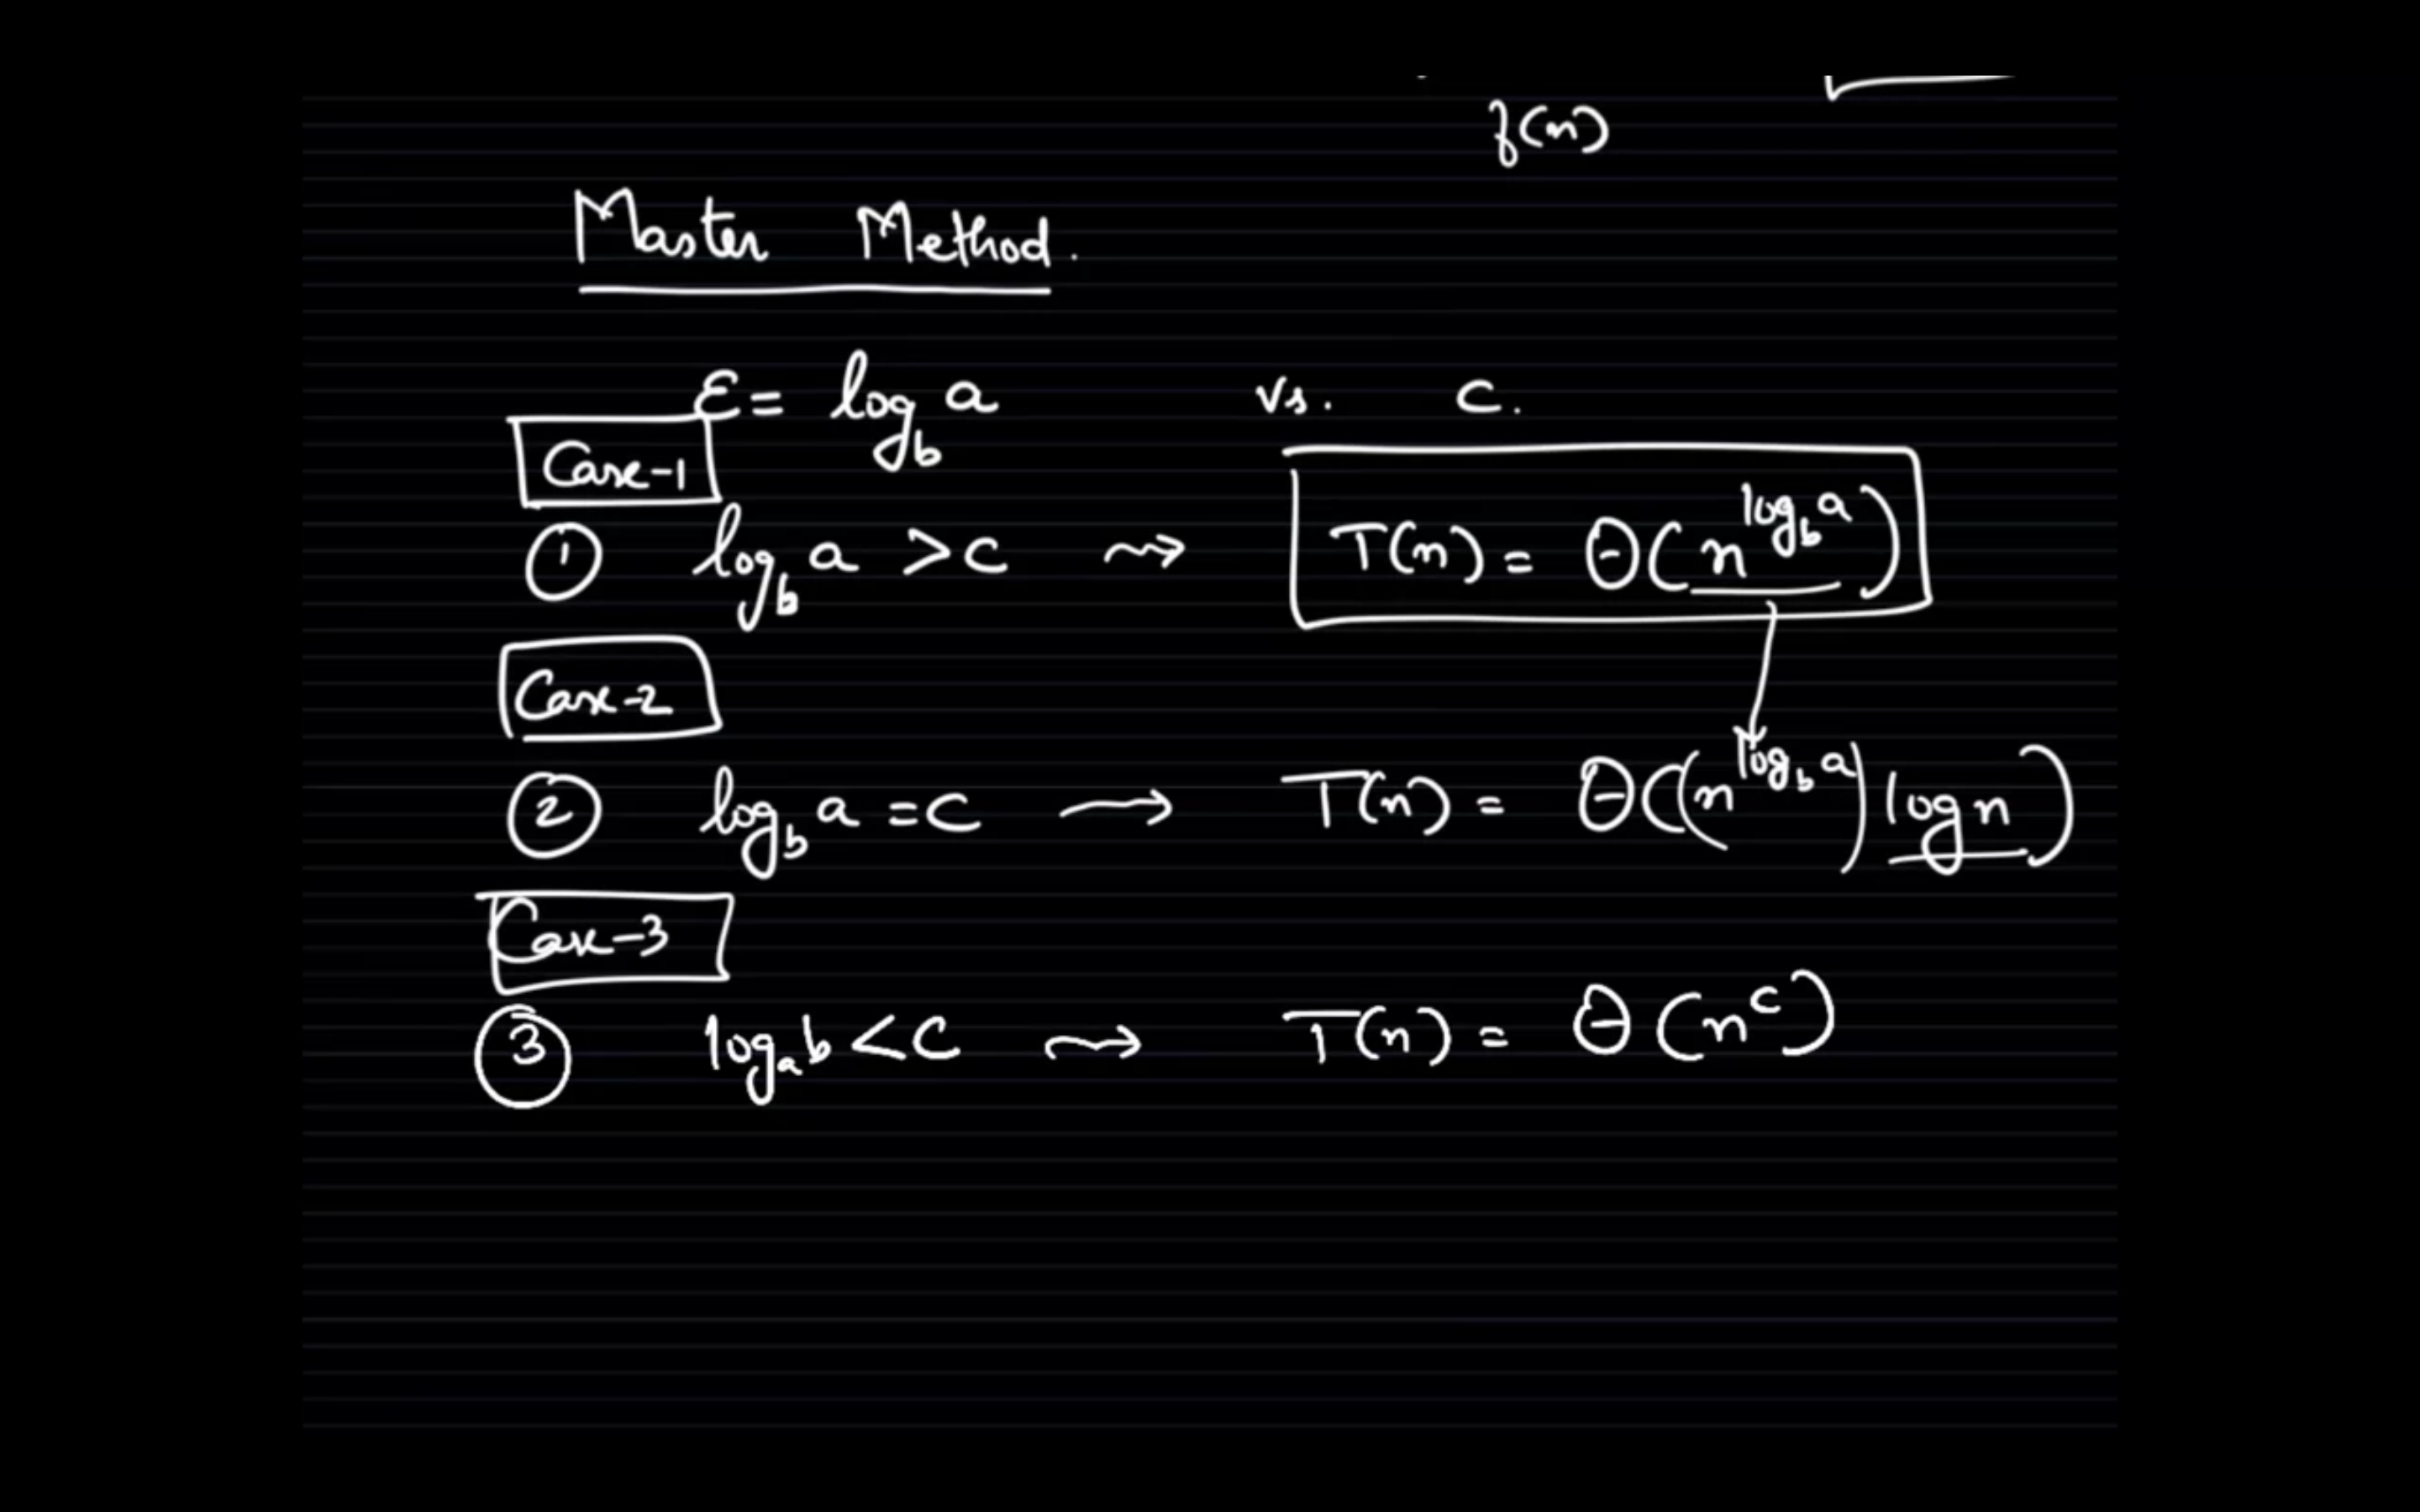 f(n)
Master Method.
ε = log_b a vs. c.
Case-1
① log_b a > c ⇝ T(n) = Θ(n^{log_b a})
Case-2
② log_b a = c → T(n) = Θ((n^{log_b a}) log n)
Case-3
③ log_a b < c ⇝ T(n) = Θ(n^c)